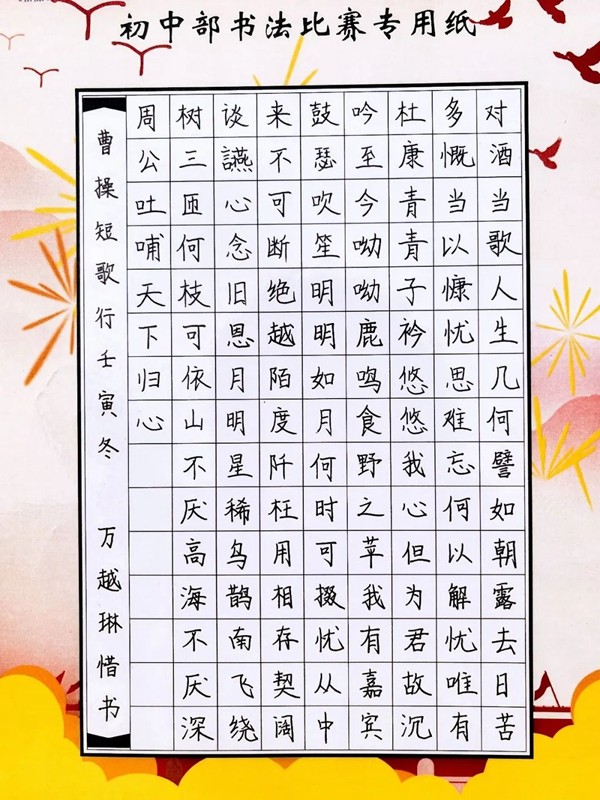 初中部书法比赛专用纸
对酒当歌人生几何譬如朝露去日苦
多慨当以慷忧思难忘何以解忧唯有
杜康青青子衿悠悠我心但为君故沉
吟至今呦呦鹿鸣食野之苹我有嘉宾
鼓瑟吹笙明明如月何时可掇忧从中
来不可断绝越陌度阡枉用相存契阔
谈讌心念旧恩月明星稀乌鹊南飞绕
树三匝何枝可依山不厌高海不厌深
周公吐哺天下归心
曹操短歌行壬寅冬 万越琳惜书